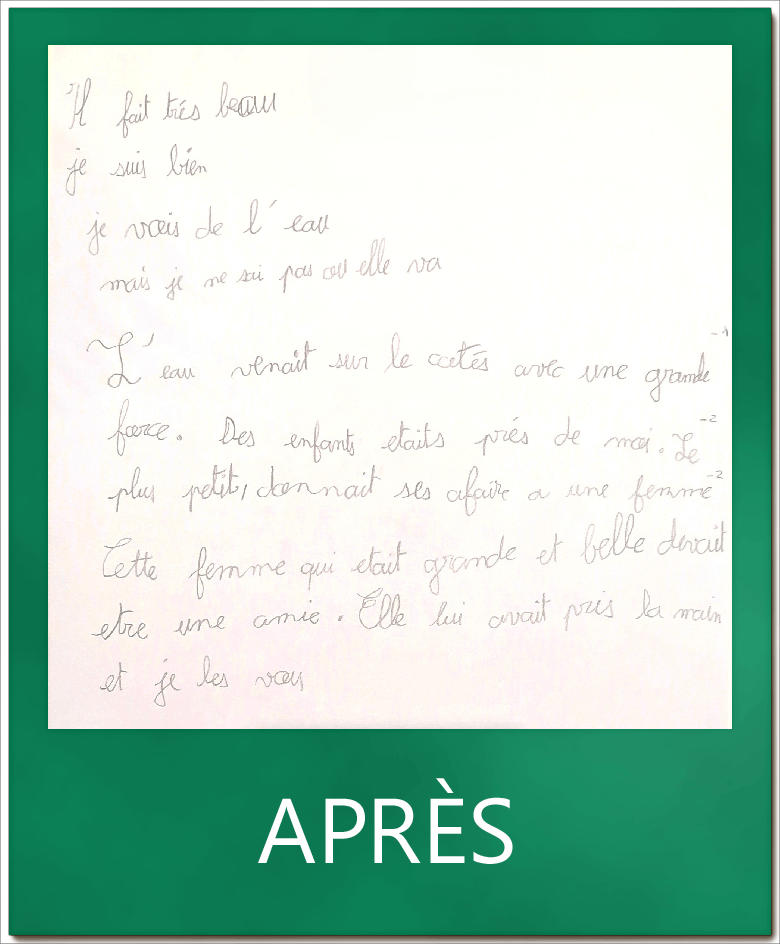 Il fait trés beau
je suis bien
je vois de l'eau
mais je ne sai pas ou elle va
-1
L'eau venait sur le cotés avec une grande
force. Des enfants etaits prés de moi. Le
-2
plus petit, donnait ses afaire a une femme
-2
Cette femme qui etait grande et belle devait
etre une amie. Elle lui avait pris la main
et je les
APRÈS